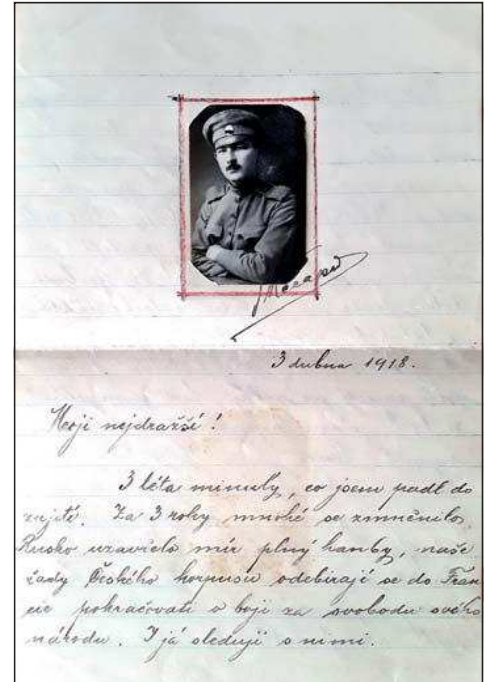 3 dubna 1918.
Moji nejdražší!
3 léta minuly, co jsem padl do
zajetí. Za 3 roky mnohé se změnilo,
Rusko uzavřelo mír plný hanby, naše
řady Českého korpusu odebírají se do Fran
cie pokračovati v boji za svobodu svého
národu. I já sleduji s nimi.